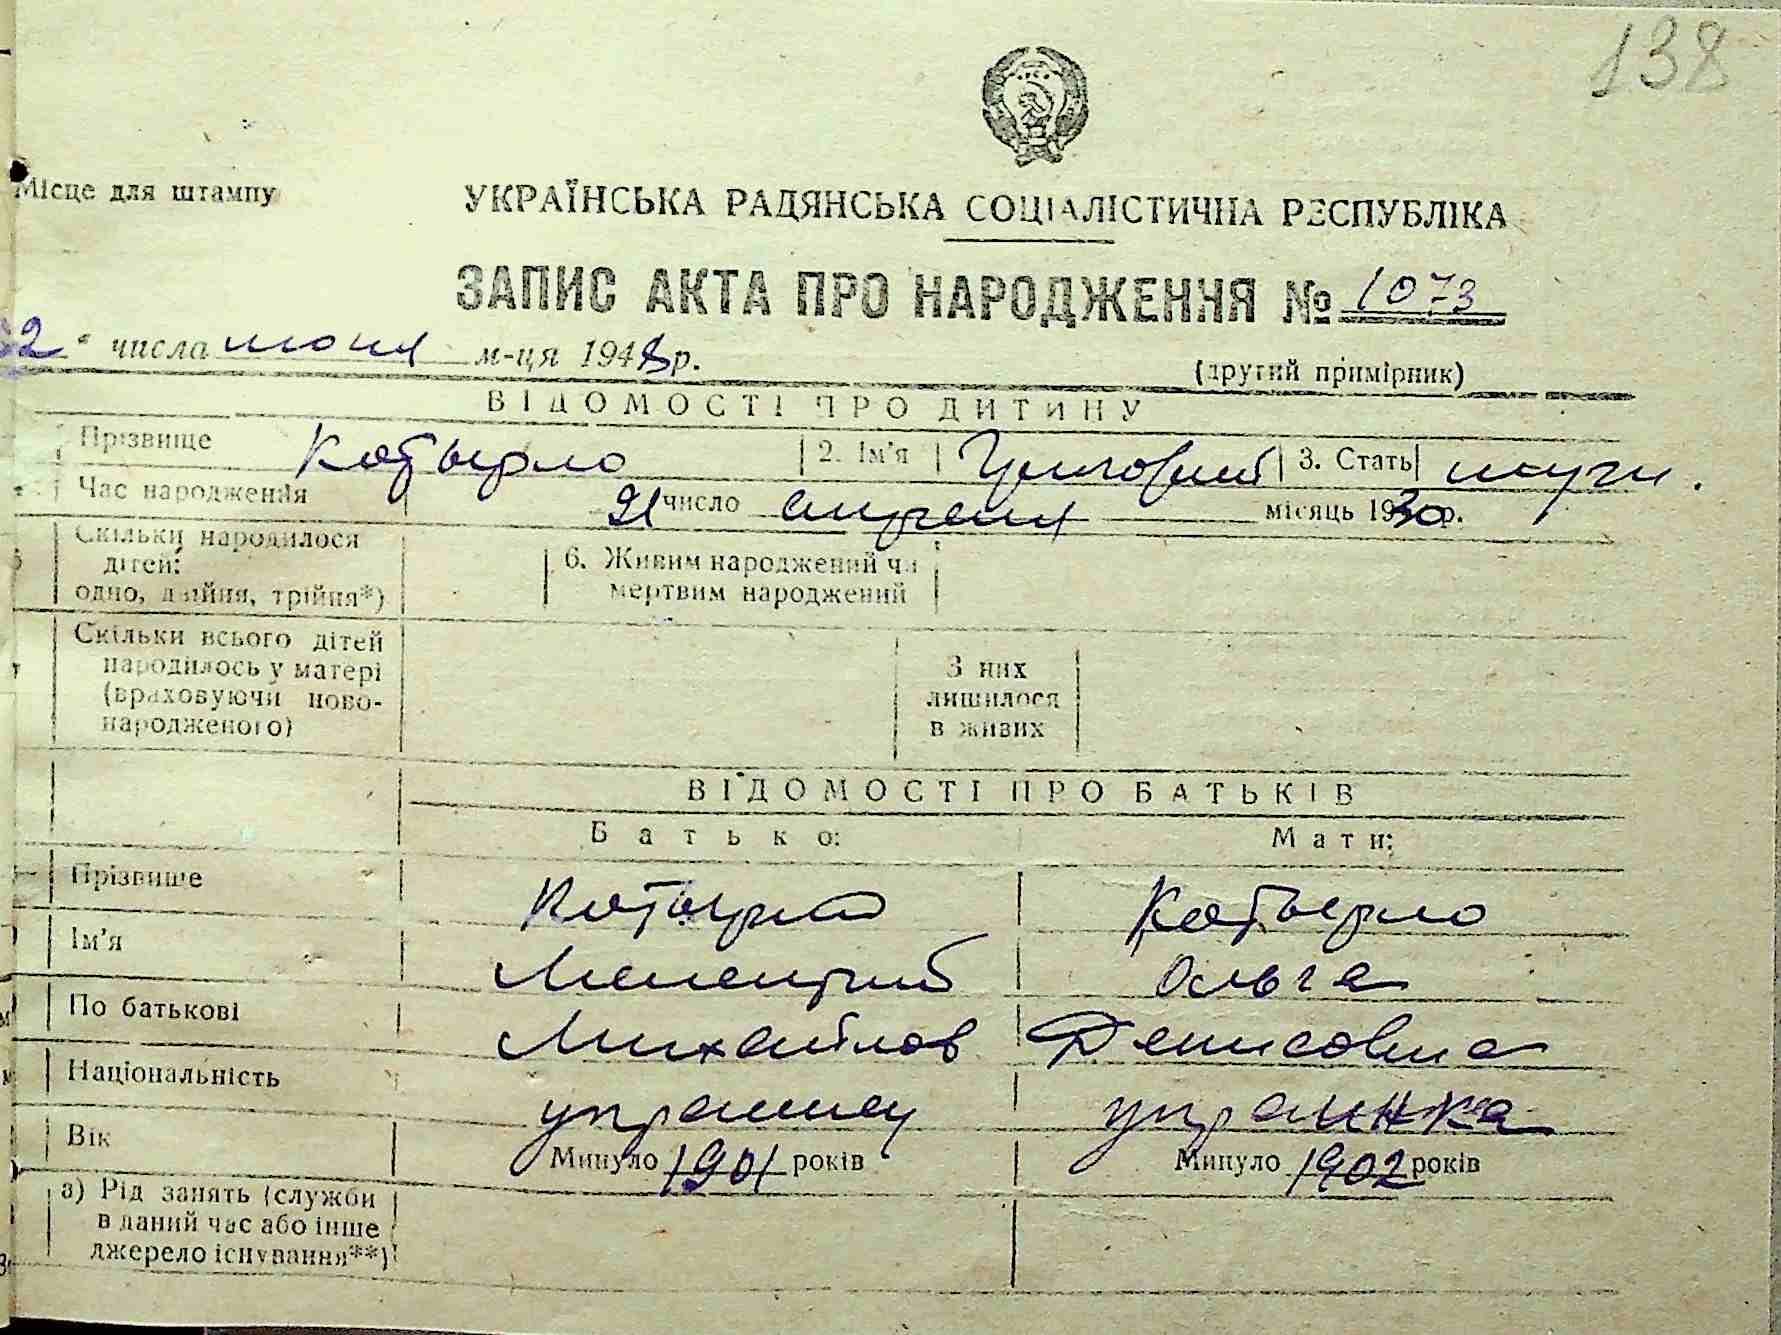 138
Місце для штампу
УКРАЇНСЬКА РАДЯНСЬКА СОЦІАЛІСТИЧНА РЕСПУБЛІКА
ЗАПИС АКТА ПРО НАРОДЖЕННЯ № 1073
числа июня м-ця 1948 р.
(другий примірник)
ВІДОМОСТІ ПРО ДИТИНУ
Прізвище Котырло 2. Ім'я Григорий 3. Стать мужч.
Час народження 21 число апреля місяць 1930 р.
Скільки народилося дітей: одно, двійня, трійня*) 6. Живим народжений чи мертвим народжений
Скільки всього дітей народилось у матері (враховуючи новонародженого) З них лишилося в живих
ВІДОМОСТІ ПРО БАТЬКІВ
Батько: Мати:
Прізвище Котырло Котырло
Ім'я Мелентий Ольга
По батькові Михайлов Денисовна
Національність украинец украинка
Вік Минуло 1901 років Минуло 1902 років
а) Рід занять (служби
в даний час або інше
джерело існування**)